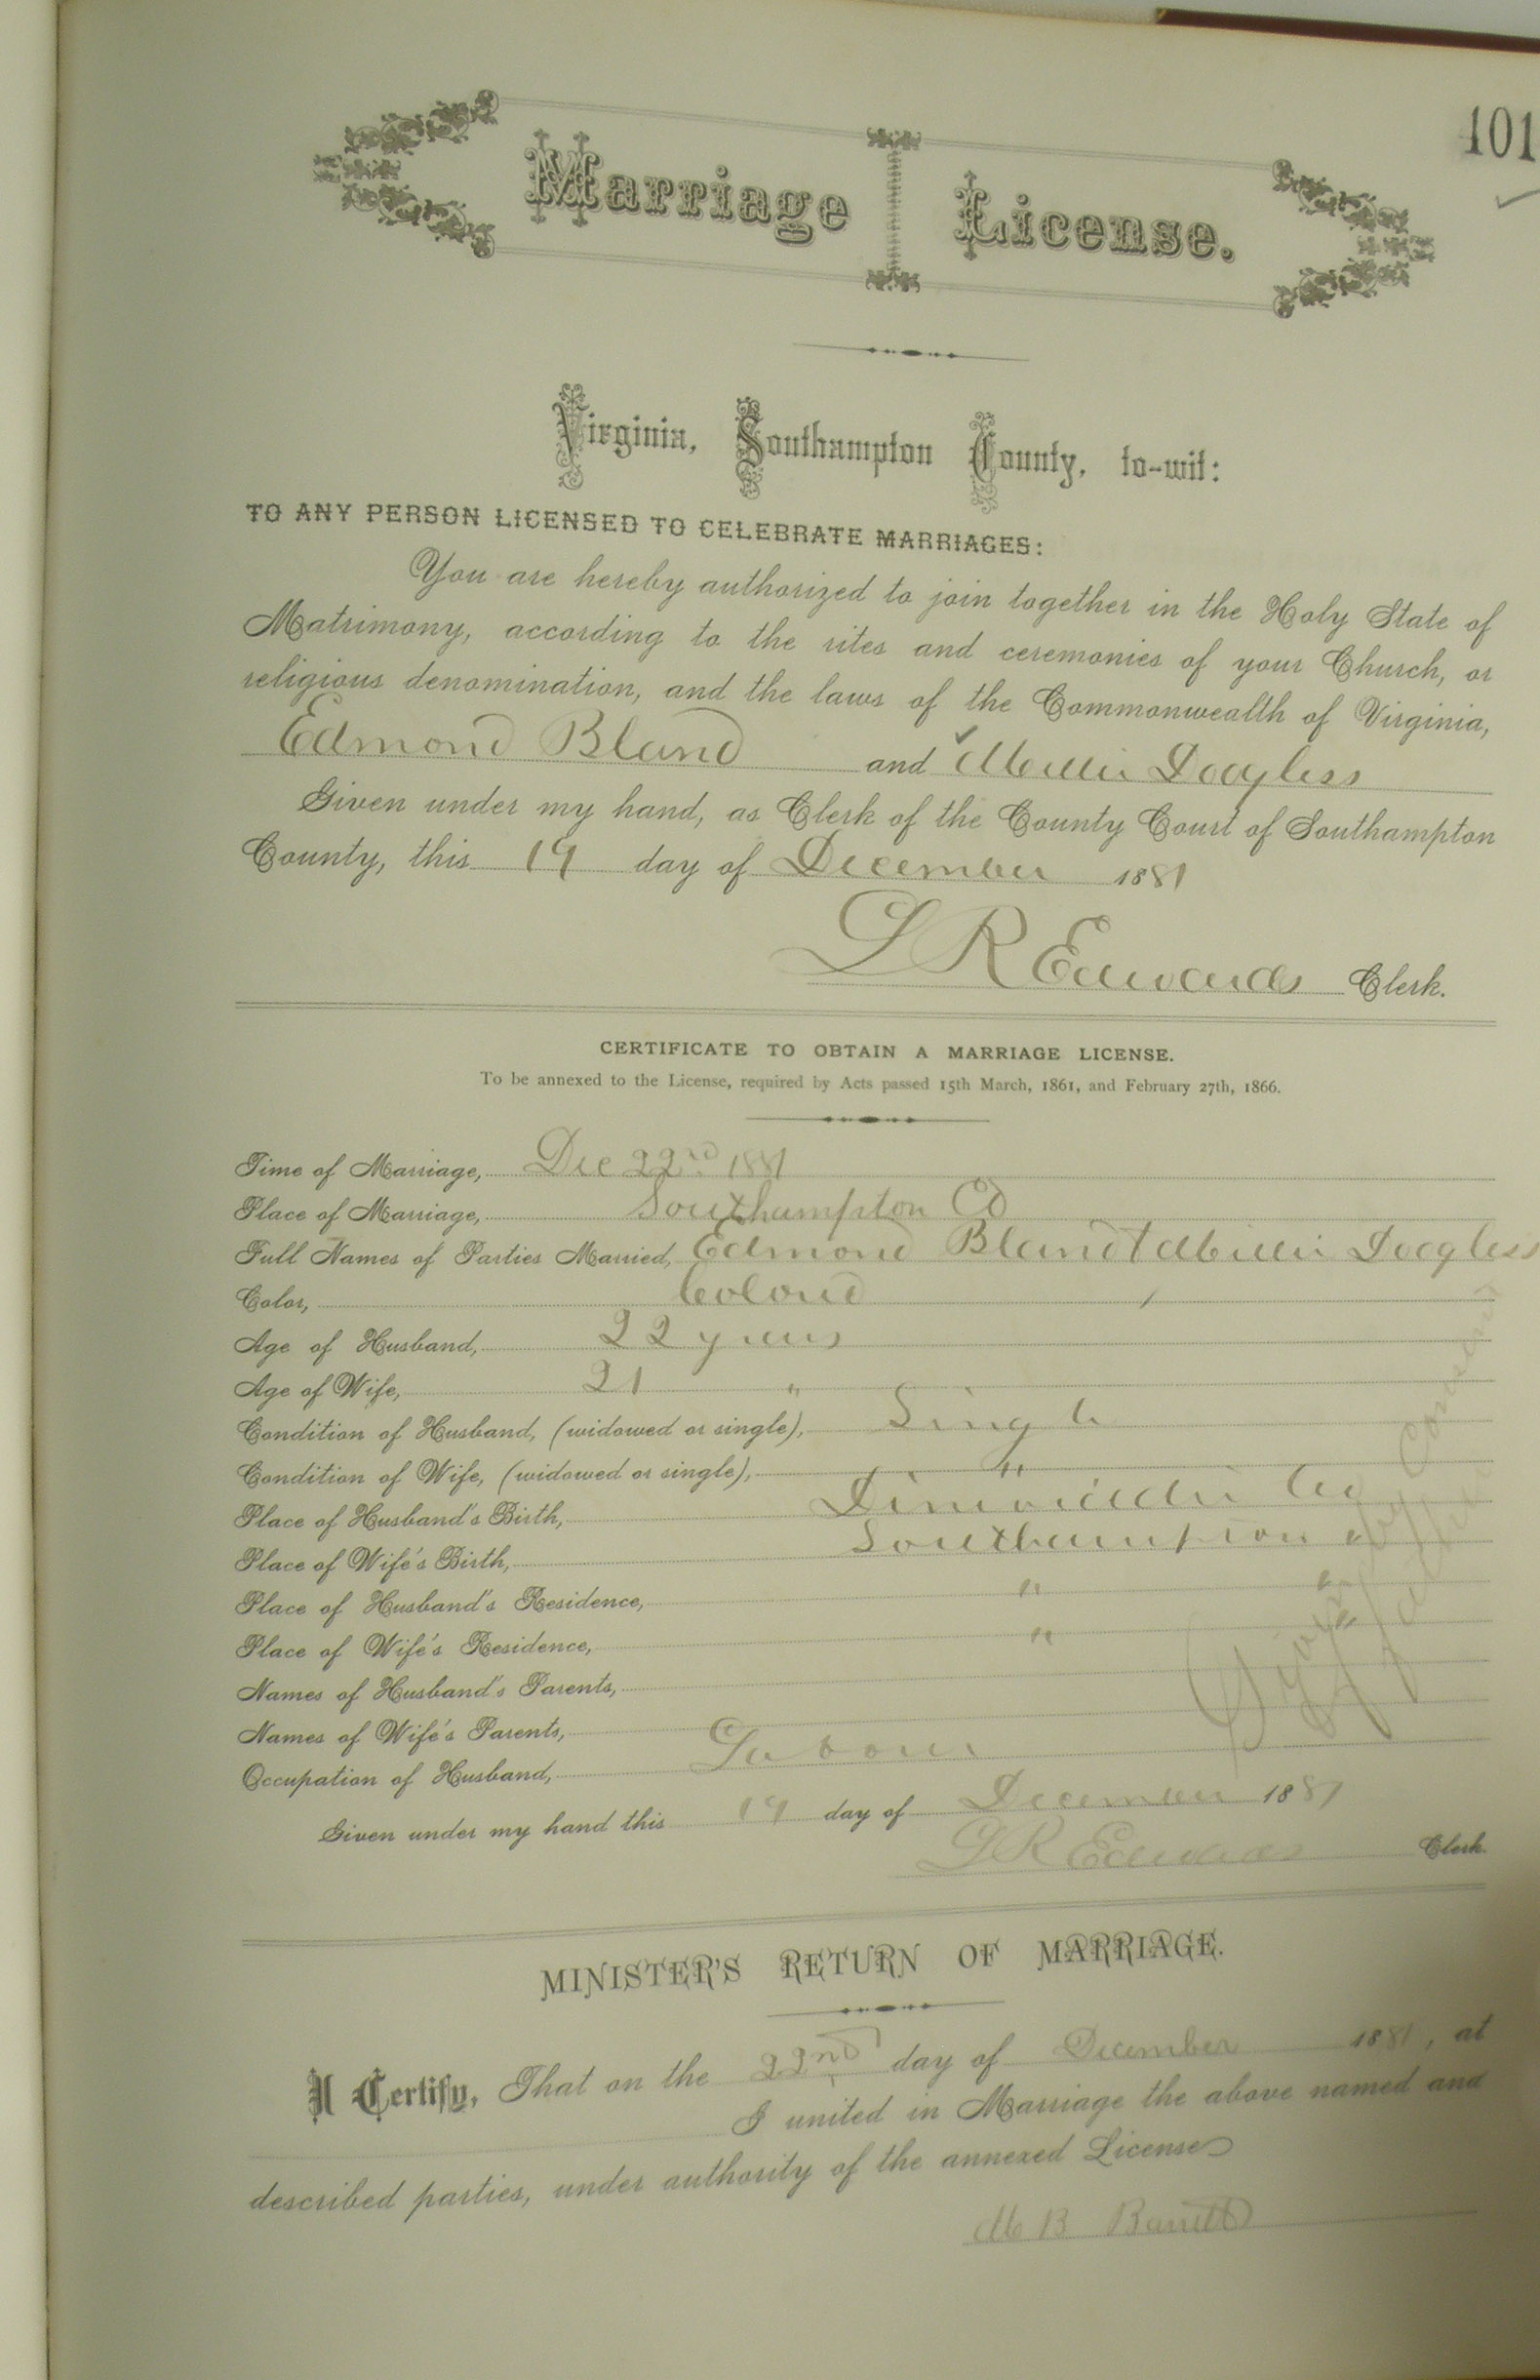 101
Marriage License.
Virginia, Southampton County, to-wit:
TO ANY PERSON LICENSED TO CELEBRATE MARRIAGES:
You are hereby authorized to join together in the Holy State of
Matrimony, according to the rites and ceremonies of your Church, or
religious denomination, and the laws of the Commonwealth of Virginia,
Edmond Bland and Millie Dogless
Given under my hand, as Clerk of the County Court of Southampton
County, this 19 day of December 1881
L R Edwards Clerk.
CERTIFICATE TO OBTAIN A MARRIAGE LICENSE.
To be annexed to the License, required by Acts passed 15th March, 1861, and February 27th, 1866.
Time of Marriage, Dec 22nd 1881
Place of Marriage, Southampton Co
Full Names of Parties Married, Edmond Bland & Millie Dogless
Color, Colored
Age of Husband, 22 years
Age of Wife, 21 "
Condition of Husband, (widowed or single), Single
Condition of Wife, (widowed or single), "
Place of Husband's Birth, Dinwiddie Co
Place of Wife's Birth, Southampton "
Place of Husband's Residence, " "
Place of Wife's Residence, " "
Names of Husband's Parents,
Names of Wife's Parents,
Occupation of Husband, Laborer
Given under my hand this 19 day of December 1881
L R Edwards Clerk.
MINISTER'S RETURN OF MARRIAGE.
I Certify, That on the 22nd day of December 1881, at
I united in Marriage the above named and
described parties, under authority of the annexed License
M B Barrett